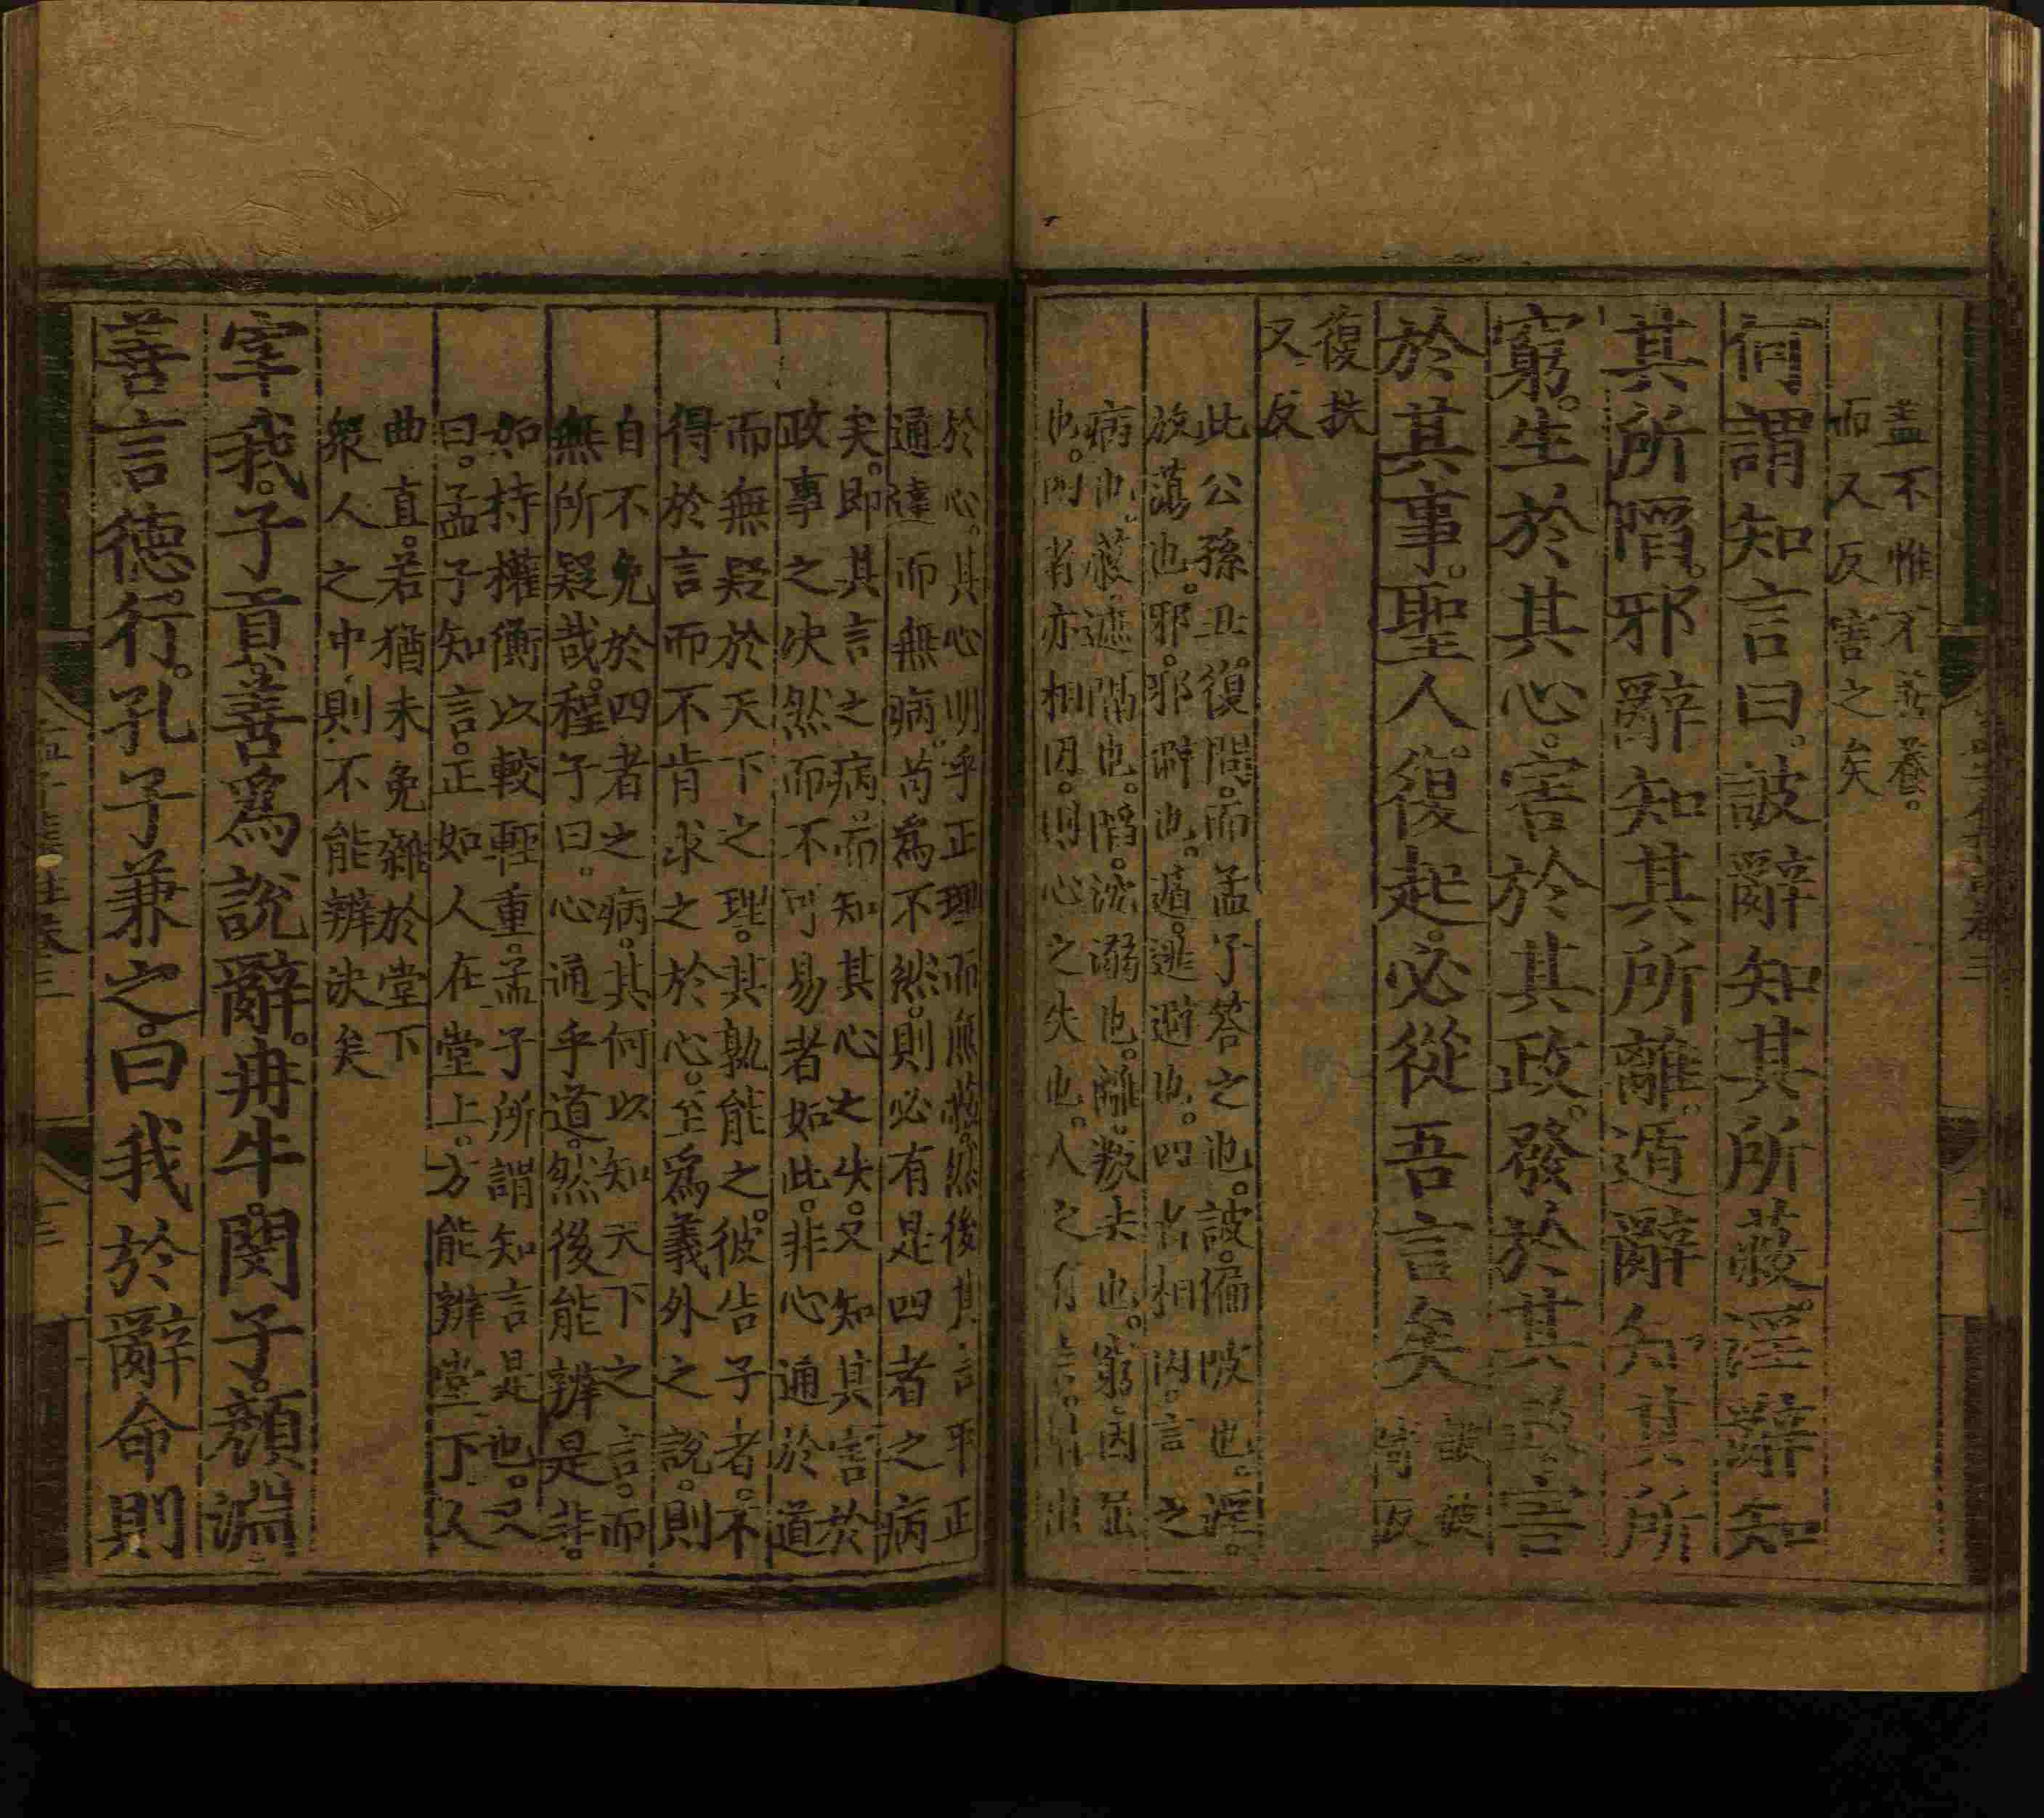 盖不惟不善養。
而又反害之矣
何謂知言曰。詖辭知其所蔽。淫辭知
其所陷。邪辭知其所離。遁辭知其所
窮。生於其心。害於其政。發於其政。害
於其事。聖人。復起。必從吾言矣
詖彼
寄反
復扶
又反
此公孫丑。復問。而孟子答之也。詖。偏陂也。淫。
放蕩也。邪。邪僻也。遁。逃避也。四者相因。言之
病也。蔽。遮隔也。陷。沈溺也。離。叛去也。窮。困屈
也。四者亦相因。則心之失也。人之有言。皆出
於心。其心明乎正理而無蔽。然後其言平正
通達而無病。苟爲不然。則必有是四者之病
矣。即其言之病。而知其心之失。又知其害於
政事之决然而不可易者如此。非心通於道
而無疑於天下之理。其孰能之。彼告子者。不
得於言而不肯求之於心。至爲義外之說。則
自不免於四者之病。其何以知天下之言。而
無所疑哉。程子曰。心通乎道。然後能辨是非。
如持權衡以較輕重。孟子所謂知言是也。又
曰。孟子知言。正如人在堂上。方能辨堂下人
曲直。若猶未免雜於堂下
衆人之中則不能辨决矣
宰我。子貢。善爲說辭。冉牛。閔子。顏淵
善言德行。孔子兼之。曰我於辭命則